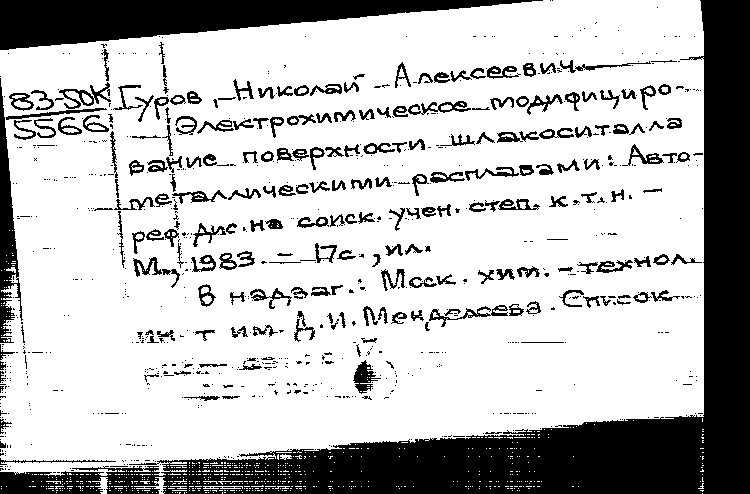 83-50К Гуров, Николай Алексеевич.
5566 Электрохимическое модифициро-
вание поверхности шлакоситалла
металлическими расплавами: Авто-
реф. дис. на соиск. учен. степ. к.т.н. –
М., 1983. – 17с., ил.
В надзаг.: Моск. хим.-технол.
ин-т им. Д.И. Менделеева. Список
с 17.